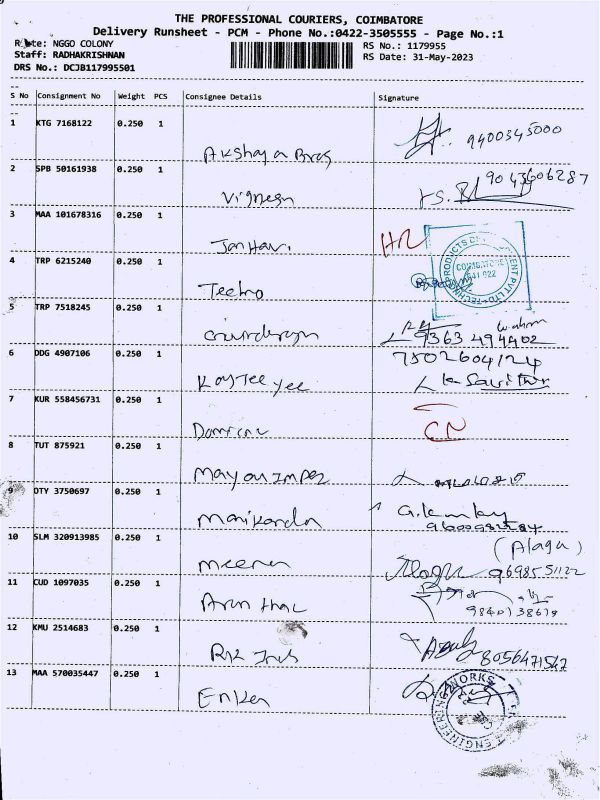 THE PROFESSIONAL COURIERS, COIMBATORE
Delivery Runsheet - PCM - Phone No.:0422-3505555 - Page No.:1
Route: NGGO COLONY
RS No.: 1179955
Staff: RADHAKRISHNAN
RS Date: 31-May-2023
DRS No.: DCJB117995501
S No Consignment No Weight PCS Consignee Details Signature
1 KTG 7168122 0.250 1
Akshaya Bros 9400345000
2 SPB 50161938 0.250 1
Vignesh 9043606287
3 MAA 101678316 0.250 1
Janhavi HR
4 TRP 6215240 0.250 1
Techno
COIMBATORE
641 022
5 TRP 7518245 0.250 1
9363494402
6 DDG 4907106 0.250 1
7502604124
Kay Tee yee
7 KUR 558456731 0.250 1
CN
8 TUT 875921 0.250 1
Mayou Impex
9 OTY 3750697 0.250 1
Manikanda
10 SLM 320913985 0.250 1
(Alagu)
Meena Alagu 9698551122
11 CUD 1097035 0.250 1
Arun
12 KMU 2514683 0.250 1
RK Inds 8056471542
13 MAA 570035447 0.250 1
Enker
ENGINEERING WORKS